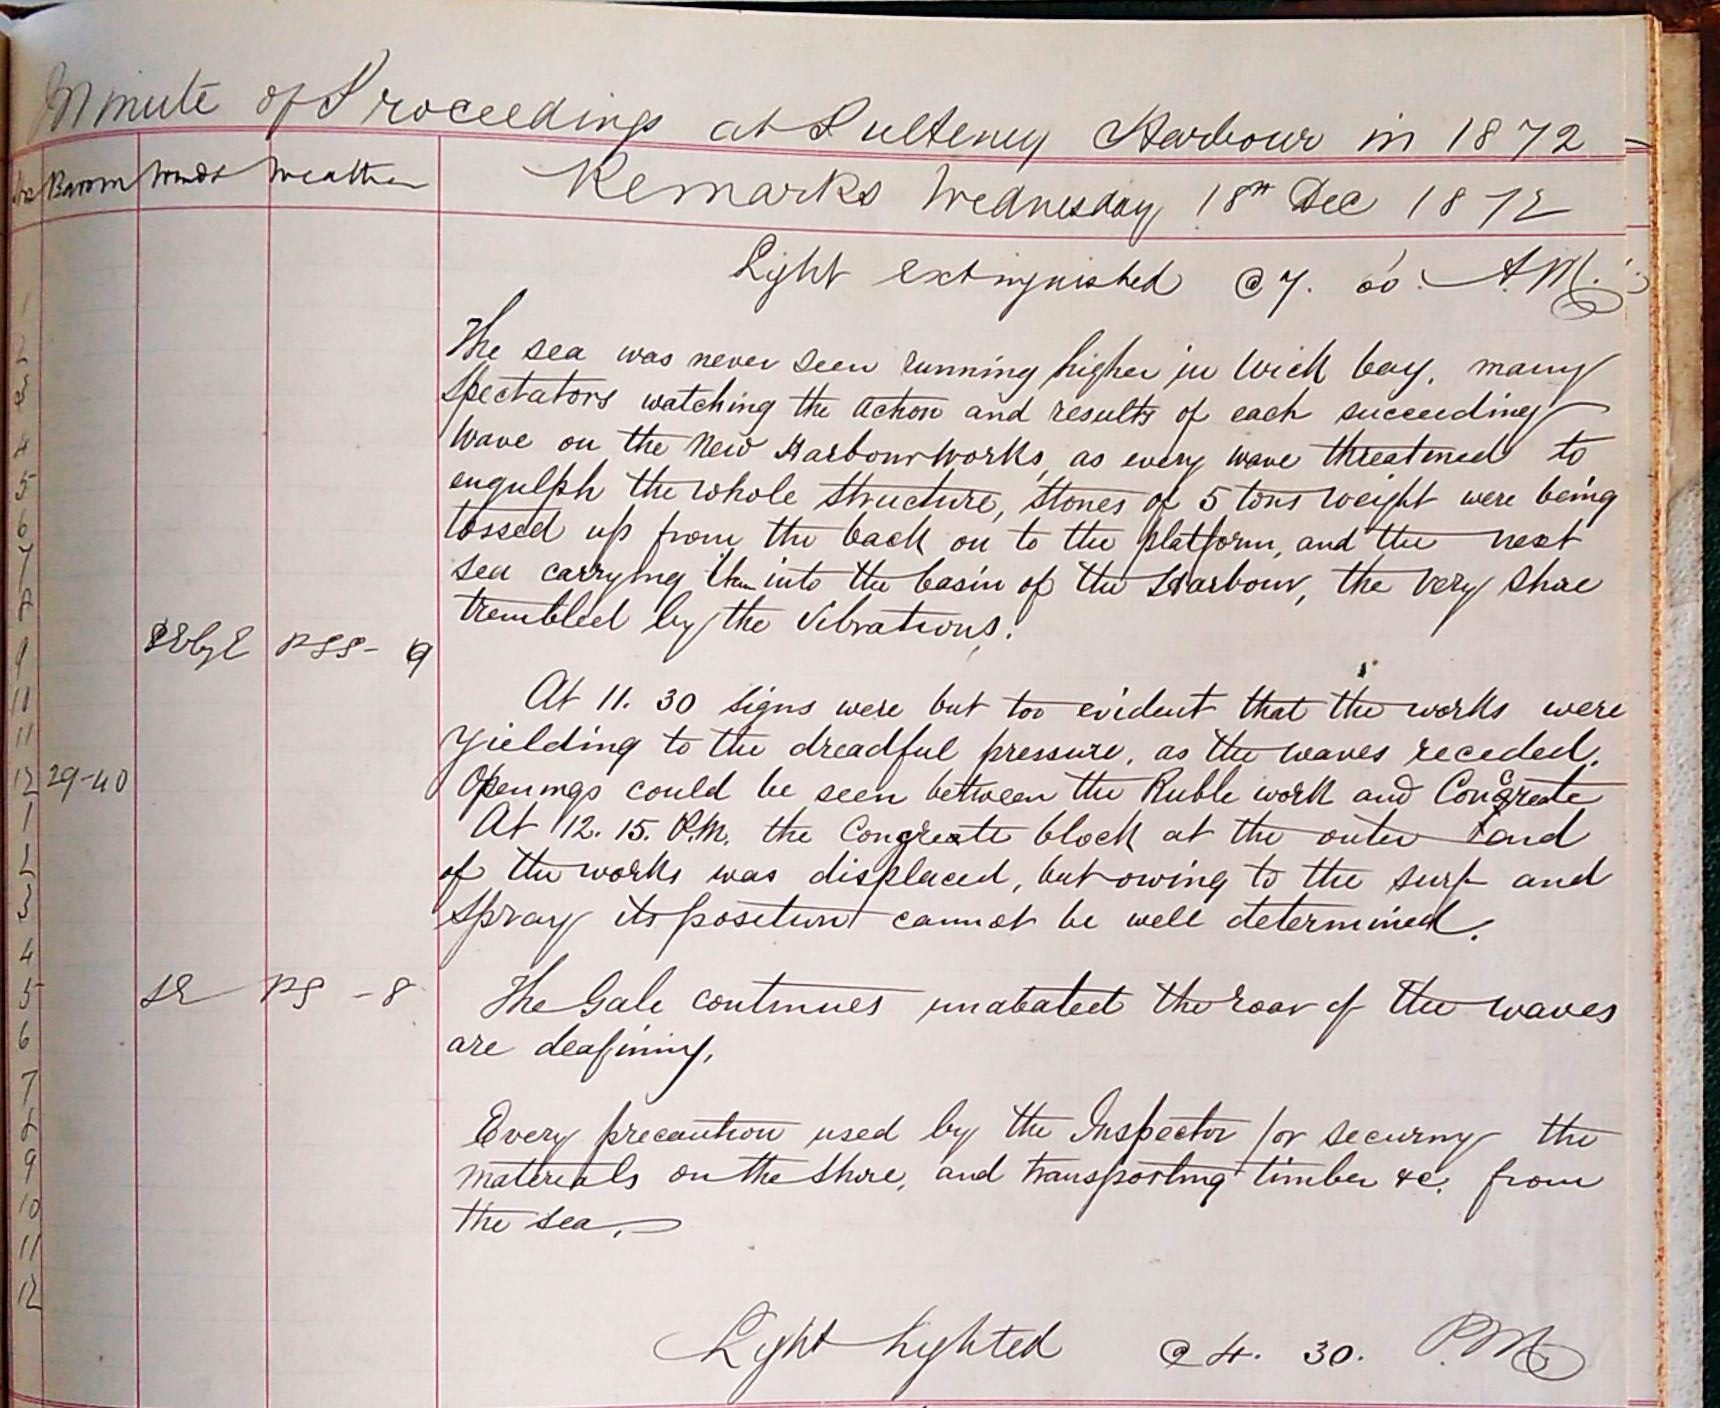 Minute of Proceedings at Pulteney Harbour in 1872
Barom Winds Weather Remarks Wednesday 18th Dec 1872
Light extinguished @ 7. 00. A.M.
1
The sea was never seen running higher in Wick bay, many
2
spectators watching the action and results of each succeeding
3
wave on the New Harbour works, as every wave threatened to
4
engulph the whole structure, stones of 5 tons weight were being
5
tossed up from the back on to the platform, and the next
6
sea carrying them into the basin of the Harbour, the very shore
7
trembled by the vibrations.
8
9 SEbyE PSS - 9
At 11. 30 signs were but too evident that the works were
11
yielding to the dreadful pressure, as the waves receded.
11
12 29-40 Openings could be seen between the Ruble work and Congreate
1 At 12. 15. P.M. the Congreate block at the outer end
2 of the works was displaced, but owing to the surf and
3 spray its position cannot be well determined.
4
5 SE PS - 8 The Gale continues unabated the roar of the waves
6 are deafining,
7
8 Every precaution used by the Inspector for securing the
9 materials on the shore, and transporting timber &c. from
10 the sea.
11
12
Light Lighted @ 4. 30. P.M.